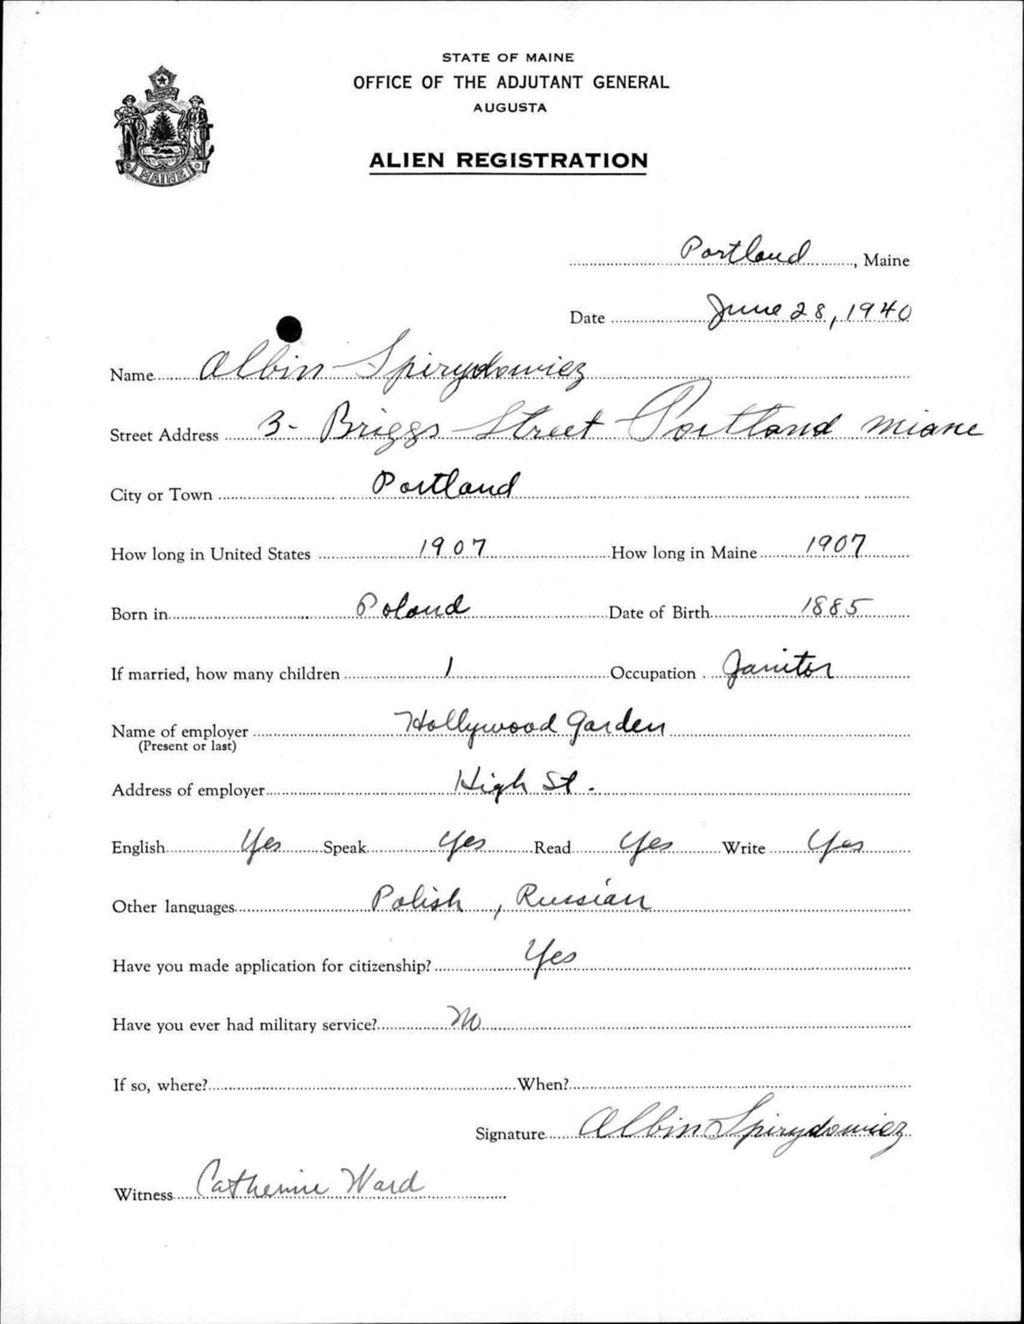 STATE OF MAINE
OFFICE OF THE ADJUTANT GENERAL
AUGUSTA
MAINE
ALIEN REGISTRATION
Portland, Maine
Date June 28, 1940
Name Albin Spirydowicz
Street Address 3- Briggs Street Portland Miane
City or Town Portland
How long in United States 1907 How long in Maine 1907
Born in Poland Date of Birth 1885
If married, how many children 1 Occupation Janitor
Name of employer Hollywood Garden
(Present or last)
Address of employer High St.
English Yes Speak Yes Read Yes Write Yes
Other languages Polish, Russian
Have you made application for citizenship? Yes
Have you ever had military service? No
If so, where? When?
Signature Albin Spirydowicz
Witness Catherine Ward